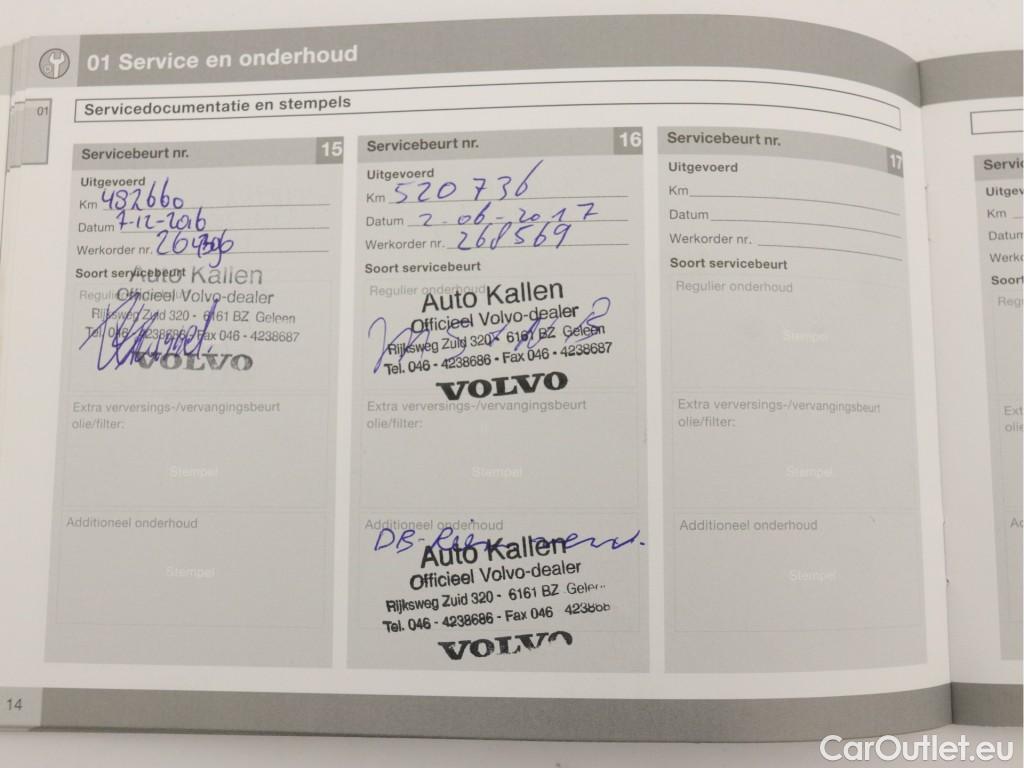 01 Service en onderhoud
01
Servicedocumentatie en stempels
Servicebeurt nr. 15
Uitgevoerd
Km 482660
Datum 7-12-2016
Werkorder nr.
Soort servicebeurt
Auto Kallen
Regulier onderhoud
Officieel Volvo-dealer
Rijksweg Zuid 320 - 6161 BZ Geleen
Tel. 046 - 4238686 - Fax 046 - 4238687
VOLVO
Extra verversings-/vervangingsbeurt
olie/filter:
Stempel
Additioneel onderhoud
Stempel
Servicebeurt nr. 16
Uitgevoerd
Km 520 736
Datum 2-06-2017
Werkorder nr. 268569
Soort servicebeurt
Regulier onderhoud
Auto Kallen
Officieel Volvo-dealer
Rijksweg Zuid 320 - 6161 BZ Geleen
Tel. 046 - 4238686 - Fax 046 - 4238687
VOLVO
Extra verversings-/vervangingsbeurt
olie/filter:
Stempel
Additioneel onderhoud
DB-
Auto Kallen
Officieel Volvo-dealer
Rijksweg Zuid 320 - 6161 BZ
Tel. 046 - 4238686 - Fax 046
VOLVO
Servicebeurt nr. 17
Uitgevoerd
Km
Datum
Werkorder nr.
Soort servicebeurt
Regulier onderhoud
Stempel
Extra verversings-/vervangingsbeurt
olie/filter:
Stempel
Additioneel onderhoud
Stempel
Km
14
CarOutlet.eu